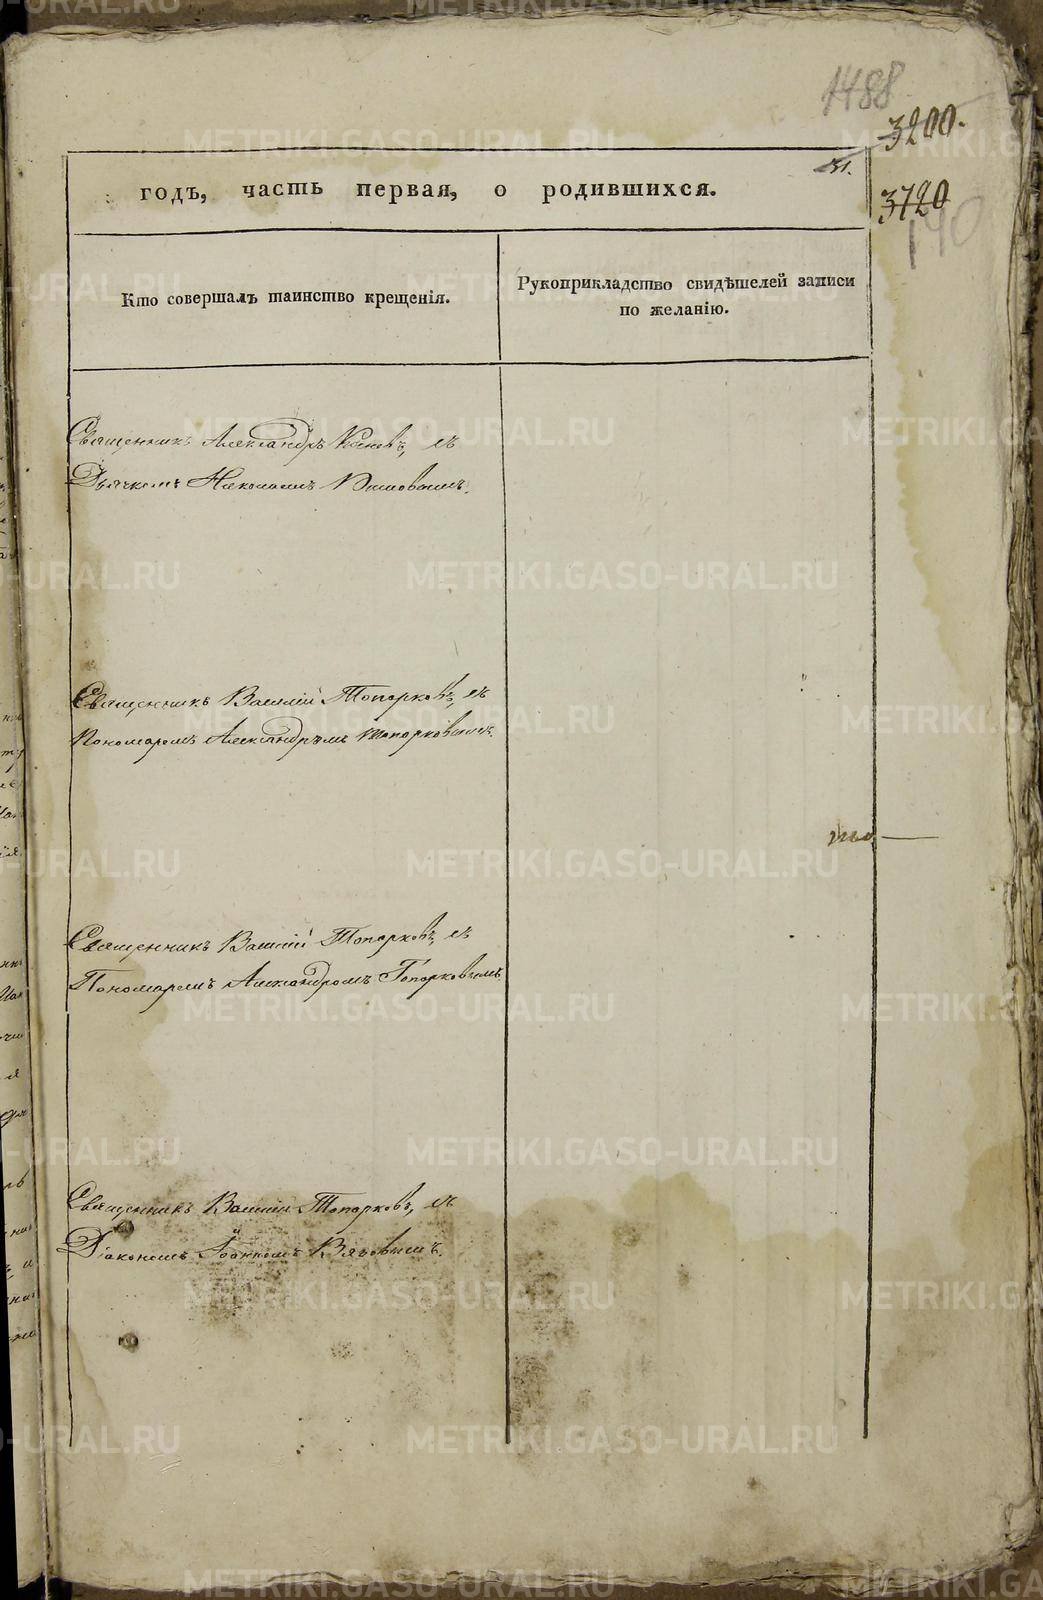 1488
3200.
31.
3720
190
годъ, часть первая, о родившихся.
Кто совершалъ таинство крещенія.
Рукоприкладство свидѣтелей записи
по желанію.
Священникъ Александръ съ
Дьячкомъ Николаемъ
Священникъ Василій Топорковъ, съ
Пономаремъ Александромъ Топорковымъ.
Священникъ Василій Топорковъ, съ
Пономаремъ Александромъ Топорковымъ.
Священникъ Василій Топорковъ, съ
Діакономъ Іоанномъ Вяровымъ.
METRIKI.GASO-URAL.RU